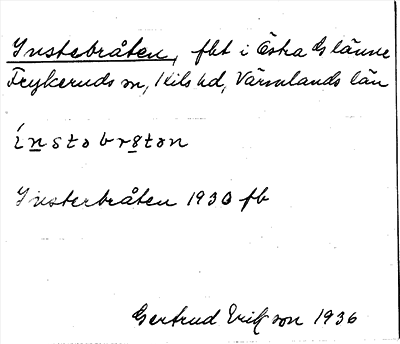 Instebråten, fbt i Östra Glänne
Frykeruds sn, Kils hd, Värmlands län
ínstəbrɵtən
Insterbråten 1930 fb
Gertrud Erikson 1936